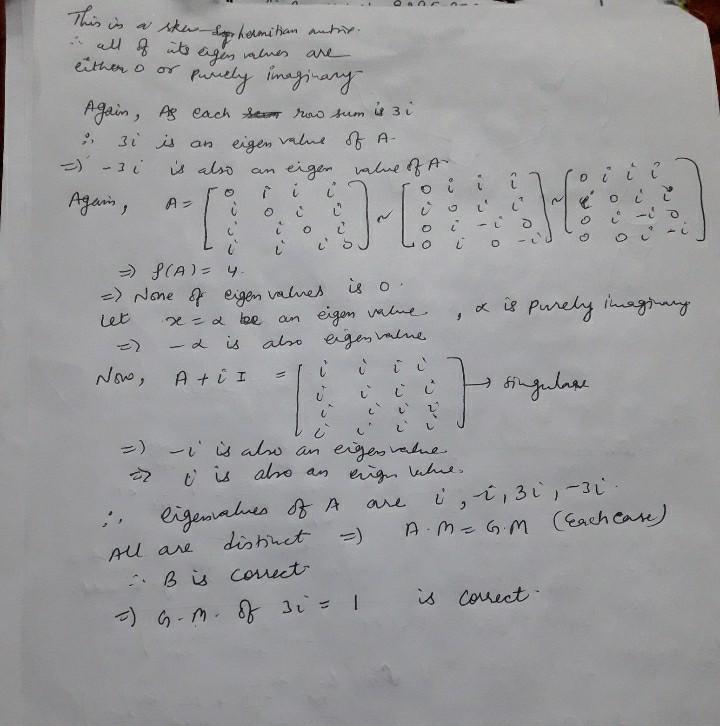 This is a skew hermitian matrix.
∴ all of its eigen values are
either 0 or purely imaginary
Again, As each row sum is 3i
∴ 3i is an eigen value of A.
=) -3i is also an eigen value of A
Again, A = [0 i i i; i 0 i i; i i 0 i; i i i 0] ~ [0 i i i; i 0 i i; 0 i -i 0; 0 i 0 -i] ~ [0 i i i; i 0 i i; 0 i -i 0; 0 0 i -i]
=) ρ(A) = 4.
=) None of eigen values is 0.
Let x = α be an eigen value, α is purely imaginary
=) -α is also eigen value
Now, A + i I = [i i i i; i i i i; i i i i; i i i i] → singular
=) -i is also an eigenvalue
=) i is also an eigen value.
∴ eigenvalues of A are i, -i, 3i, -3i.
All are distinct =) A.M = G.M (Each case)
∴ B is correct
=) G.M. of 3i = 1 is correct.